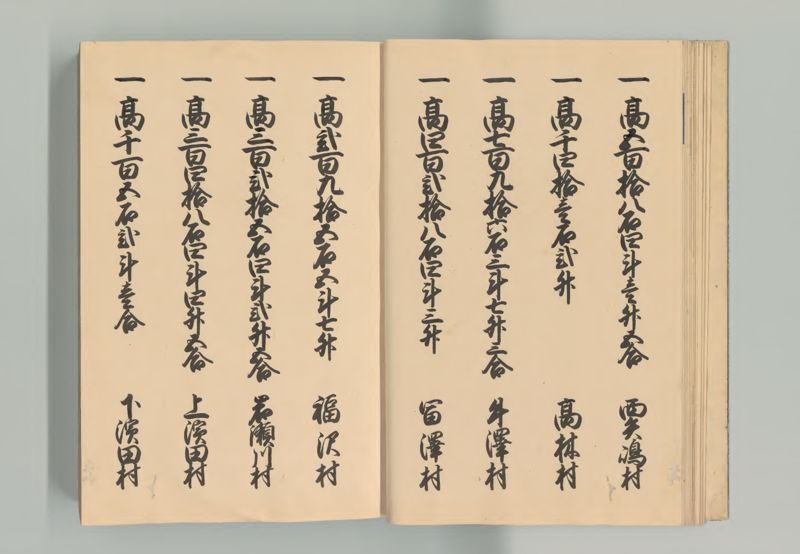 一 高五百拾八石四斗壱升五合 西矢嶋村
一 高千四拾壱石弐升 高林村
一 高七百九拾六石三斗七升三合 牛澤村
一 高四百弐拾八石四斗三升 冨澤村
一 高弐百九拾五石五斗七升 福沢村
一 高三百弐拾五石四斗弐升五合 岩瀬川村
一 高三百四拾八石四斗四升五合 上濱田村
一 高千百五石弐斗壱合 下濱田村